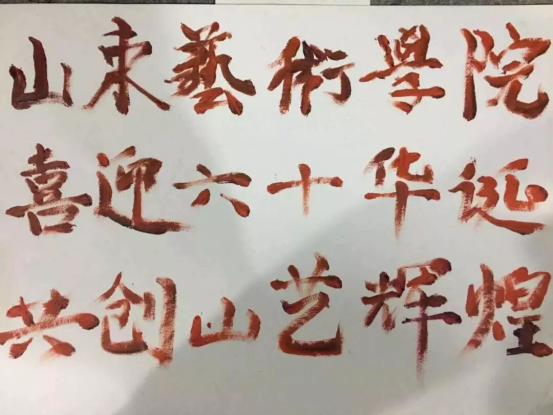 山东藝術學院
喜迎六十华诞
共创山艺辉煌